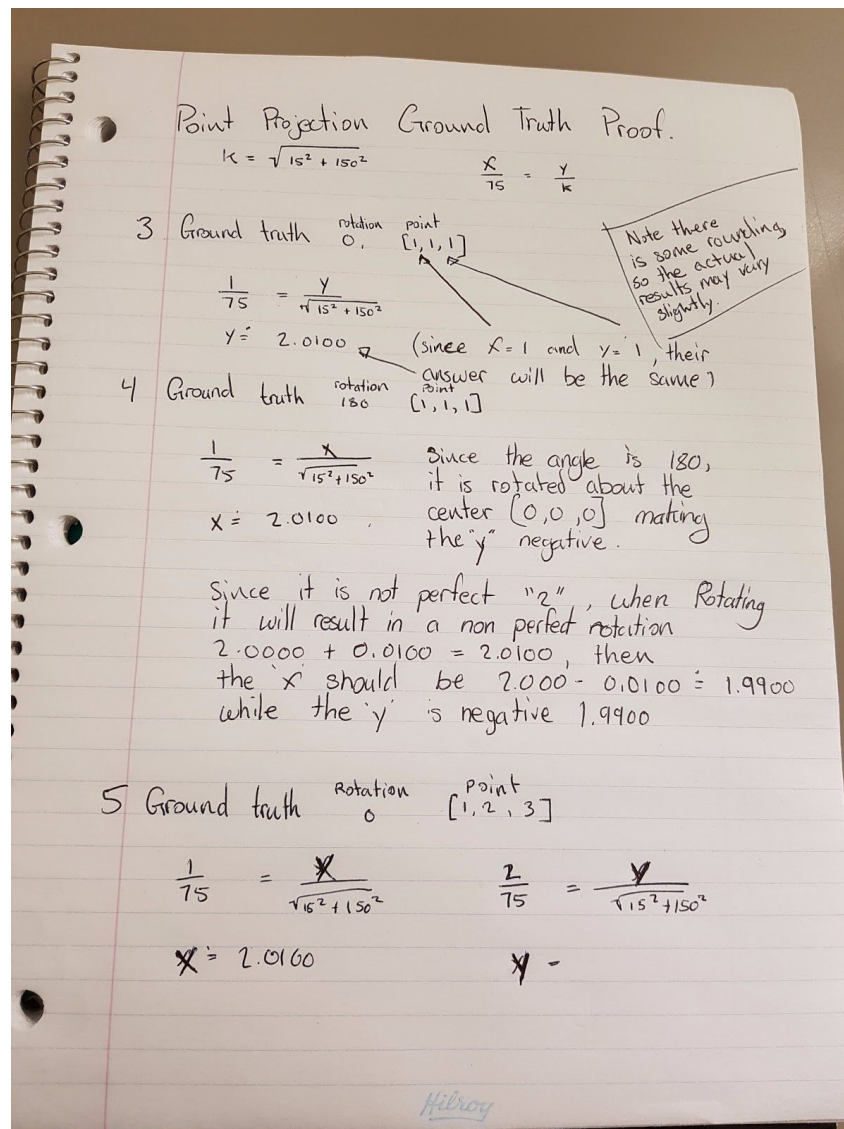 Point Projection Ground Truth Proof.
K = √15² + 150²
x/75 = y/k
Note there
is some rounding,
so the actual
results may vary
slightly.
3 Ground truth rotation 0, point [1,1,1]
1/75 = y/√15² + 150²
y ≐ 2.0100
(since x=1 and y=1, their
answer will be the same)
4 Ground truth rotation 180 point [1,1,1]
1/75 = x/√15²+150²
x ≐ 2.0100
Since the angle is 180,
it is rotated about the
center [0,0,0] making
the "y" negative.
Since it is not perfect "2", when Rotating
it will result in a non perfect rotation
2.0000 + 0.0100 = 2.0100, then
the 'x' should be 2.000 - 0.0100 ≐ 1.9900
while the 'y' is negative 1.9900
5 Ground truth Rotation 0 Point [1,2,3]
1/75 = x/√15²+150²
2/75 = y/√15²+150²
x ≐ 2.0100
y =
Hilroy